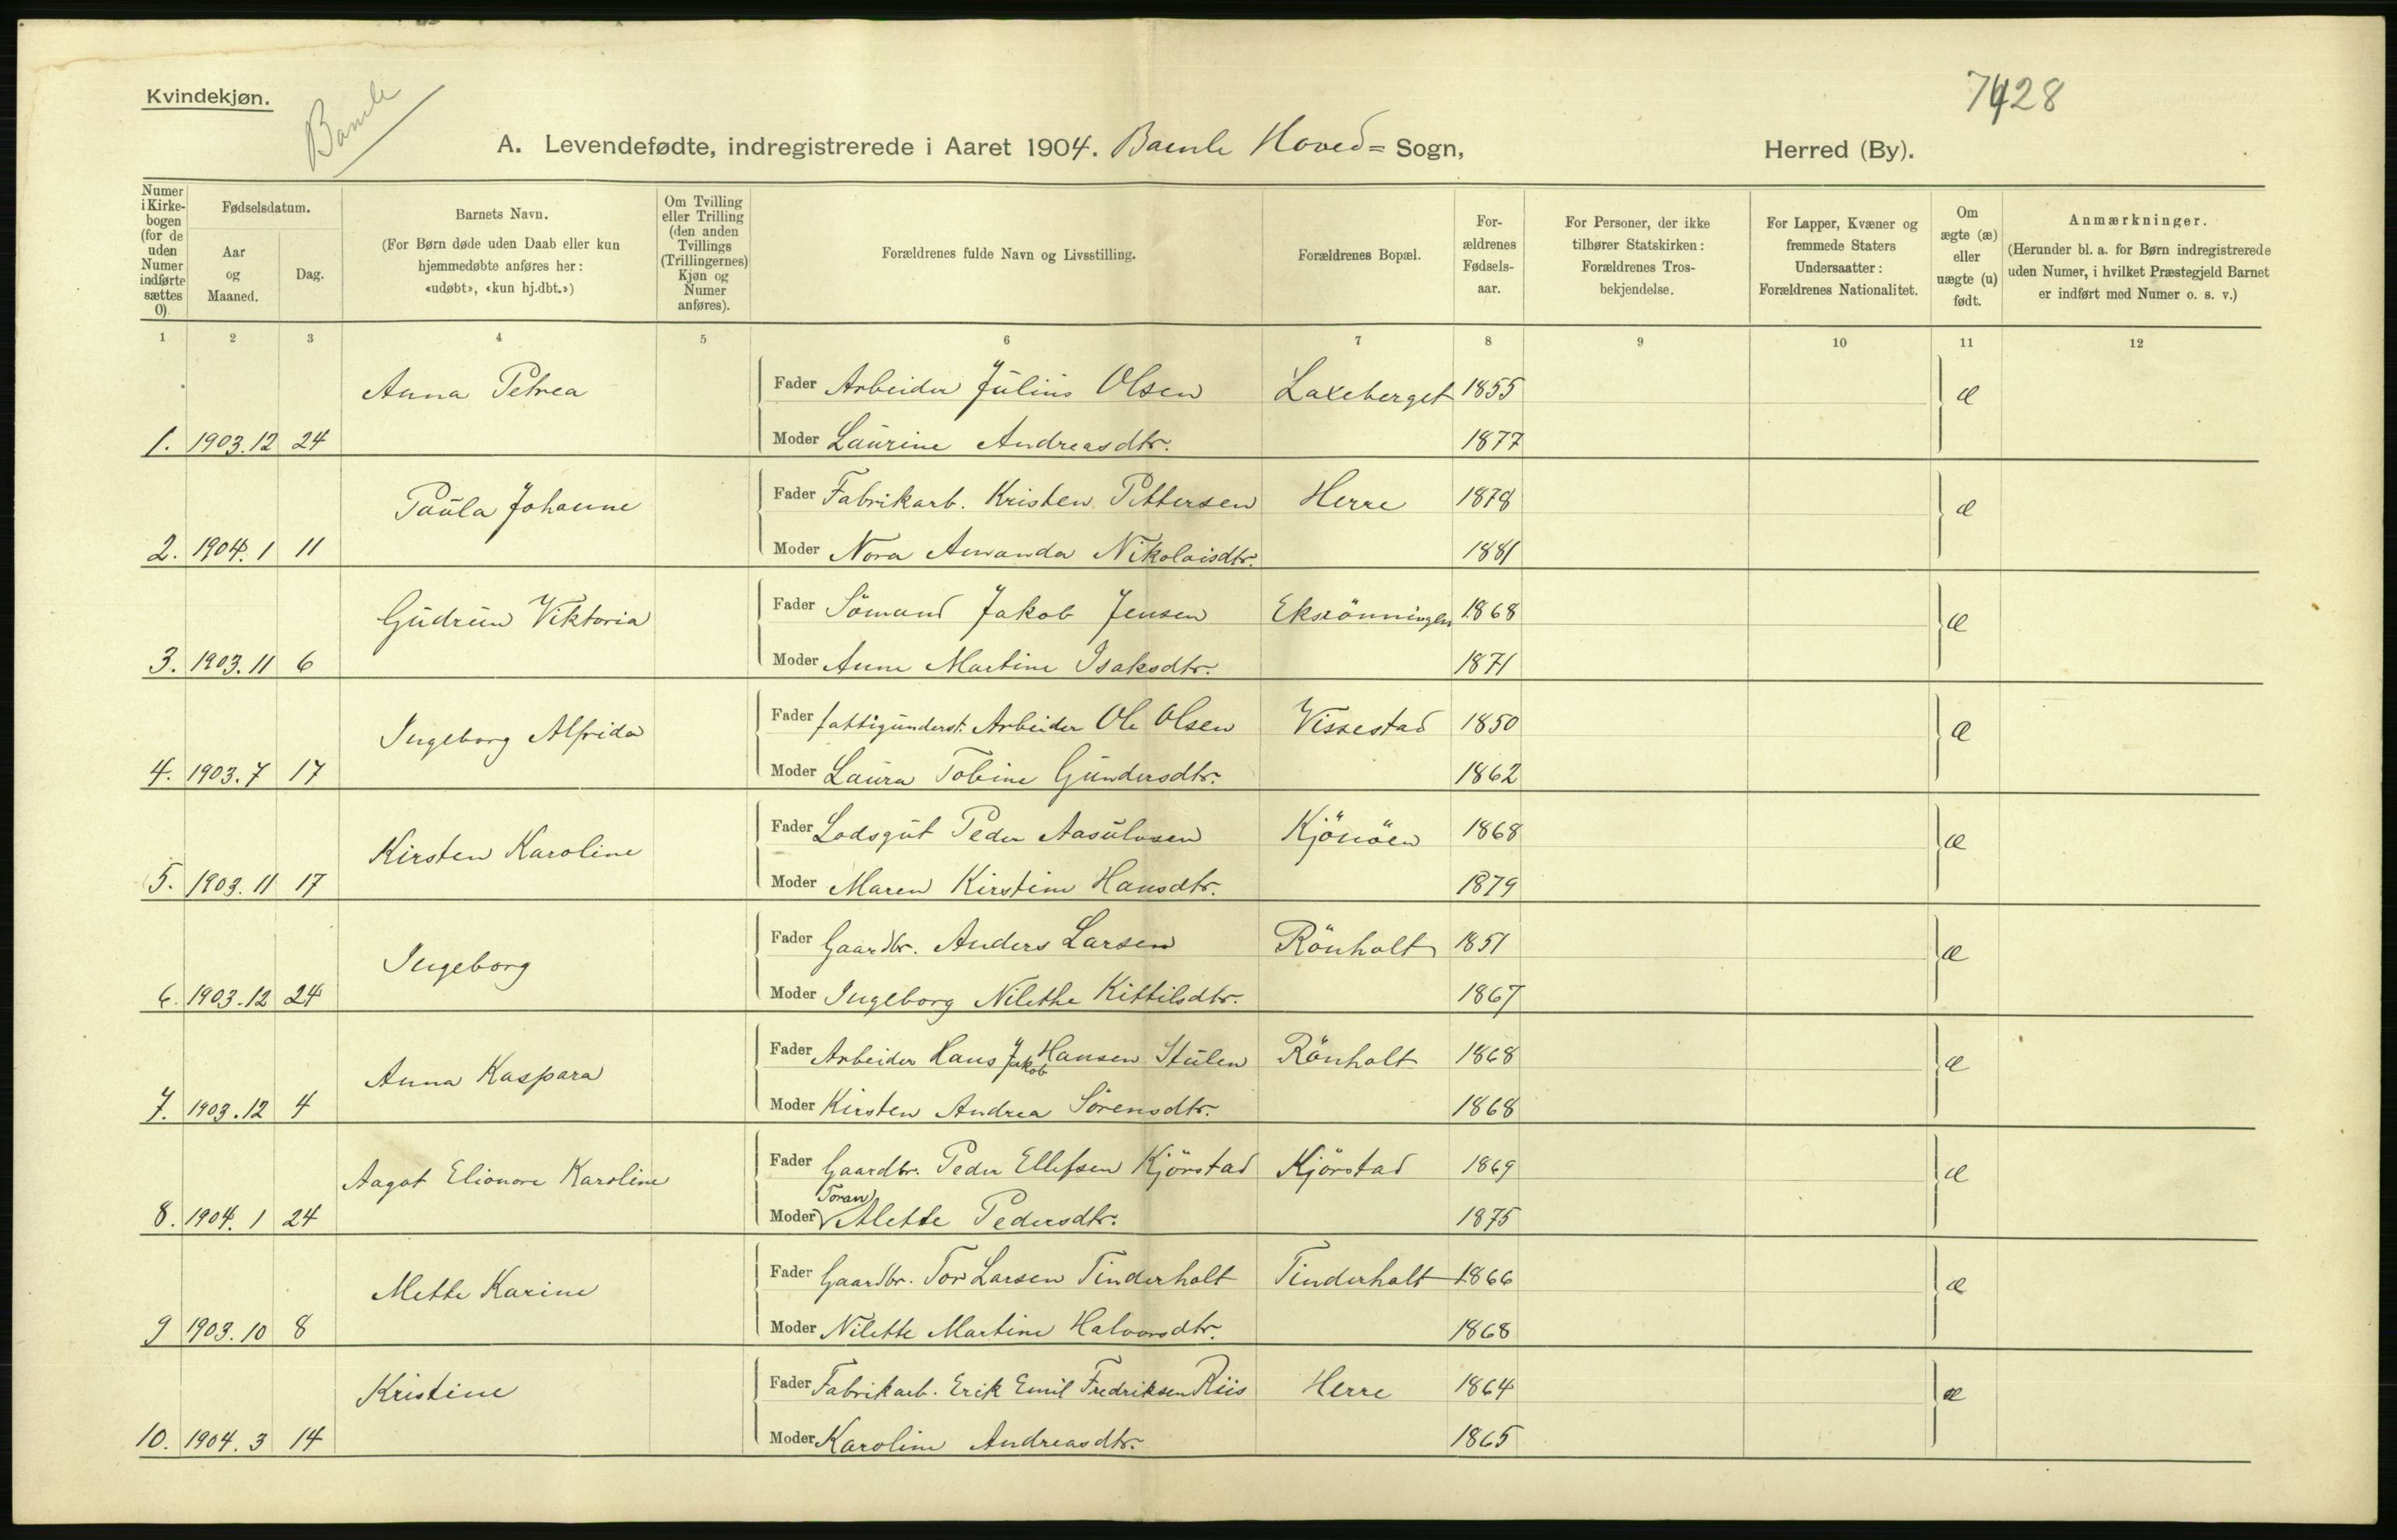 Kvindekjøn.
Bamle
7428
A. Levendefødte, indregistrerede i Aaret 1904. Bamle Hoved= Sogn, Herred (By).
Numer i Kirke-bogen (for de uden Numer indførte sættes 0).
Fødselsdatum.
Aar og Maaned.
Dag.
Barnets Navn.
(For Børn døde uden Daab eller kun hjemmedøbte anføres her: «udøbt», «kun hj.dbt.»)
Om Tvilling eller Trilling (den anden Tvillings (Trillingernes) Kjøn og Numer anføres).
Forældrenes fulde Navn og Livsstilling.
Forældrenes Bopæl.
For-ældrenes Fødsels-aar.
For Personer, der ikke tilhører Statskirken: Forældrenes Tros-bekjendelse.
For Lapper, Kvæner og fremmede Staters Undersaatter: Forældrenes Nationalitet.
Om ægte (æ) eller uægte (u) født.
Anmærkninger.
(Herunder bl. a. for Børn indregistrerede uden Numer, i hvilket Præstegjeld Barnet er indført med Numer o. s. v.)
1 2 3 4 5 6 7 8 9 10 11 12
Anna Petrea Fader Arbeider Julius Olsen Laxeberget 1855 æ
1. 1903.12 24 Moder Laurine Andreasdtr. 1877
Paula Johanne Fader Fabrikarb. Kristen Pettersen Herre 1878 æ
2. 1904.1 11 Moder Nora Amanda Nikolaisdtr. 1881
Gudrun Viktoria Fader Sömand Jakob Jensen Eksrönningen 1868 æ
3. 1903.11 6 Moder Anne Martine Isaksdtr. 1871
Ingeborg Alfrida Fader fattigunderst. Arbeider Ole Olsen Vissestad 1850 æ
4. 1903.7 17 Moder Laura Tobine Gundersdtr. 1862
Kirsten Karoline Fader Lodsgut Peder Aasulvsen Kjönöen 1868 æ
5. 1903.11 17 Moder Maren Kirstine Hansdtr. 1879
Ingeborg Fader Gaardbr. Anders Larsen Rönholt 1851 æ
6. 1903.12 24 Moder Ingeborg Nilethe Kittilsdtr. 1867
Anna Kaspara Fader Arbeider Hans Jakob Hansen Stulen Rönholt 1868 æ
7. 1903.12 4 Moder Kirsten Andrea Sörensdtr. 1868
Aagot Elionore Karoline Fader Gaardbr. Peder Ellefsen Kjörstad Kjörstad 1869 æ
8. 1904.1 24 Moder Toran Alette Pedersdtr. 1875
Mette Karine Fader Gaardbr. Tor Larsen Tinderholt Tinderholt 1866 æ
9 1903.10 8 Moder Nilette Martine Halvorsdtr. 1868
Kristine Fader Fabrikarb. Erik Emil Fredriksen Riis Herre 1864 æ
10. 1904.3 14 Moder Karoline Andreasdtr. 1865